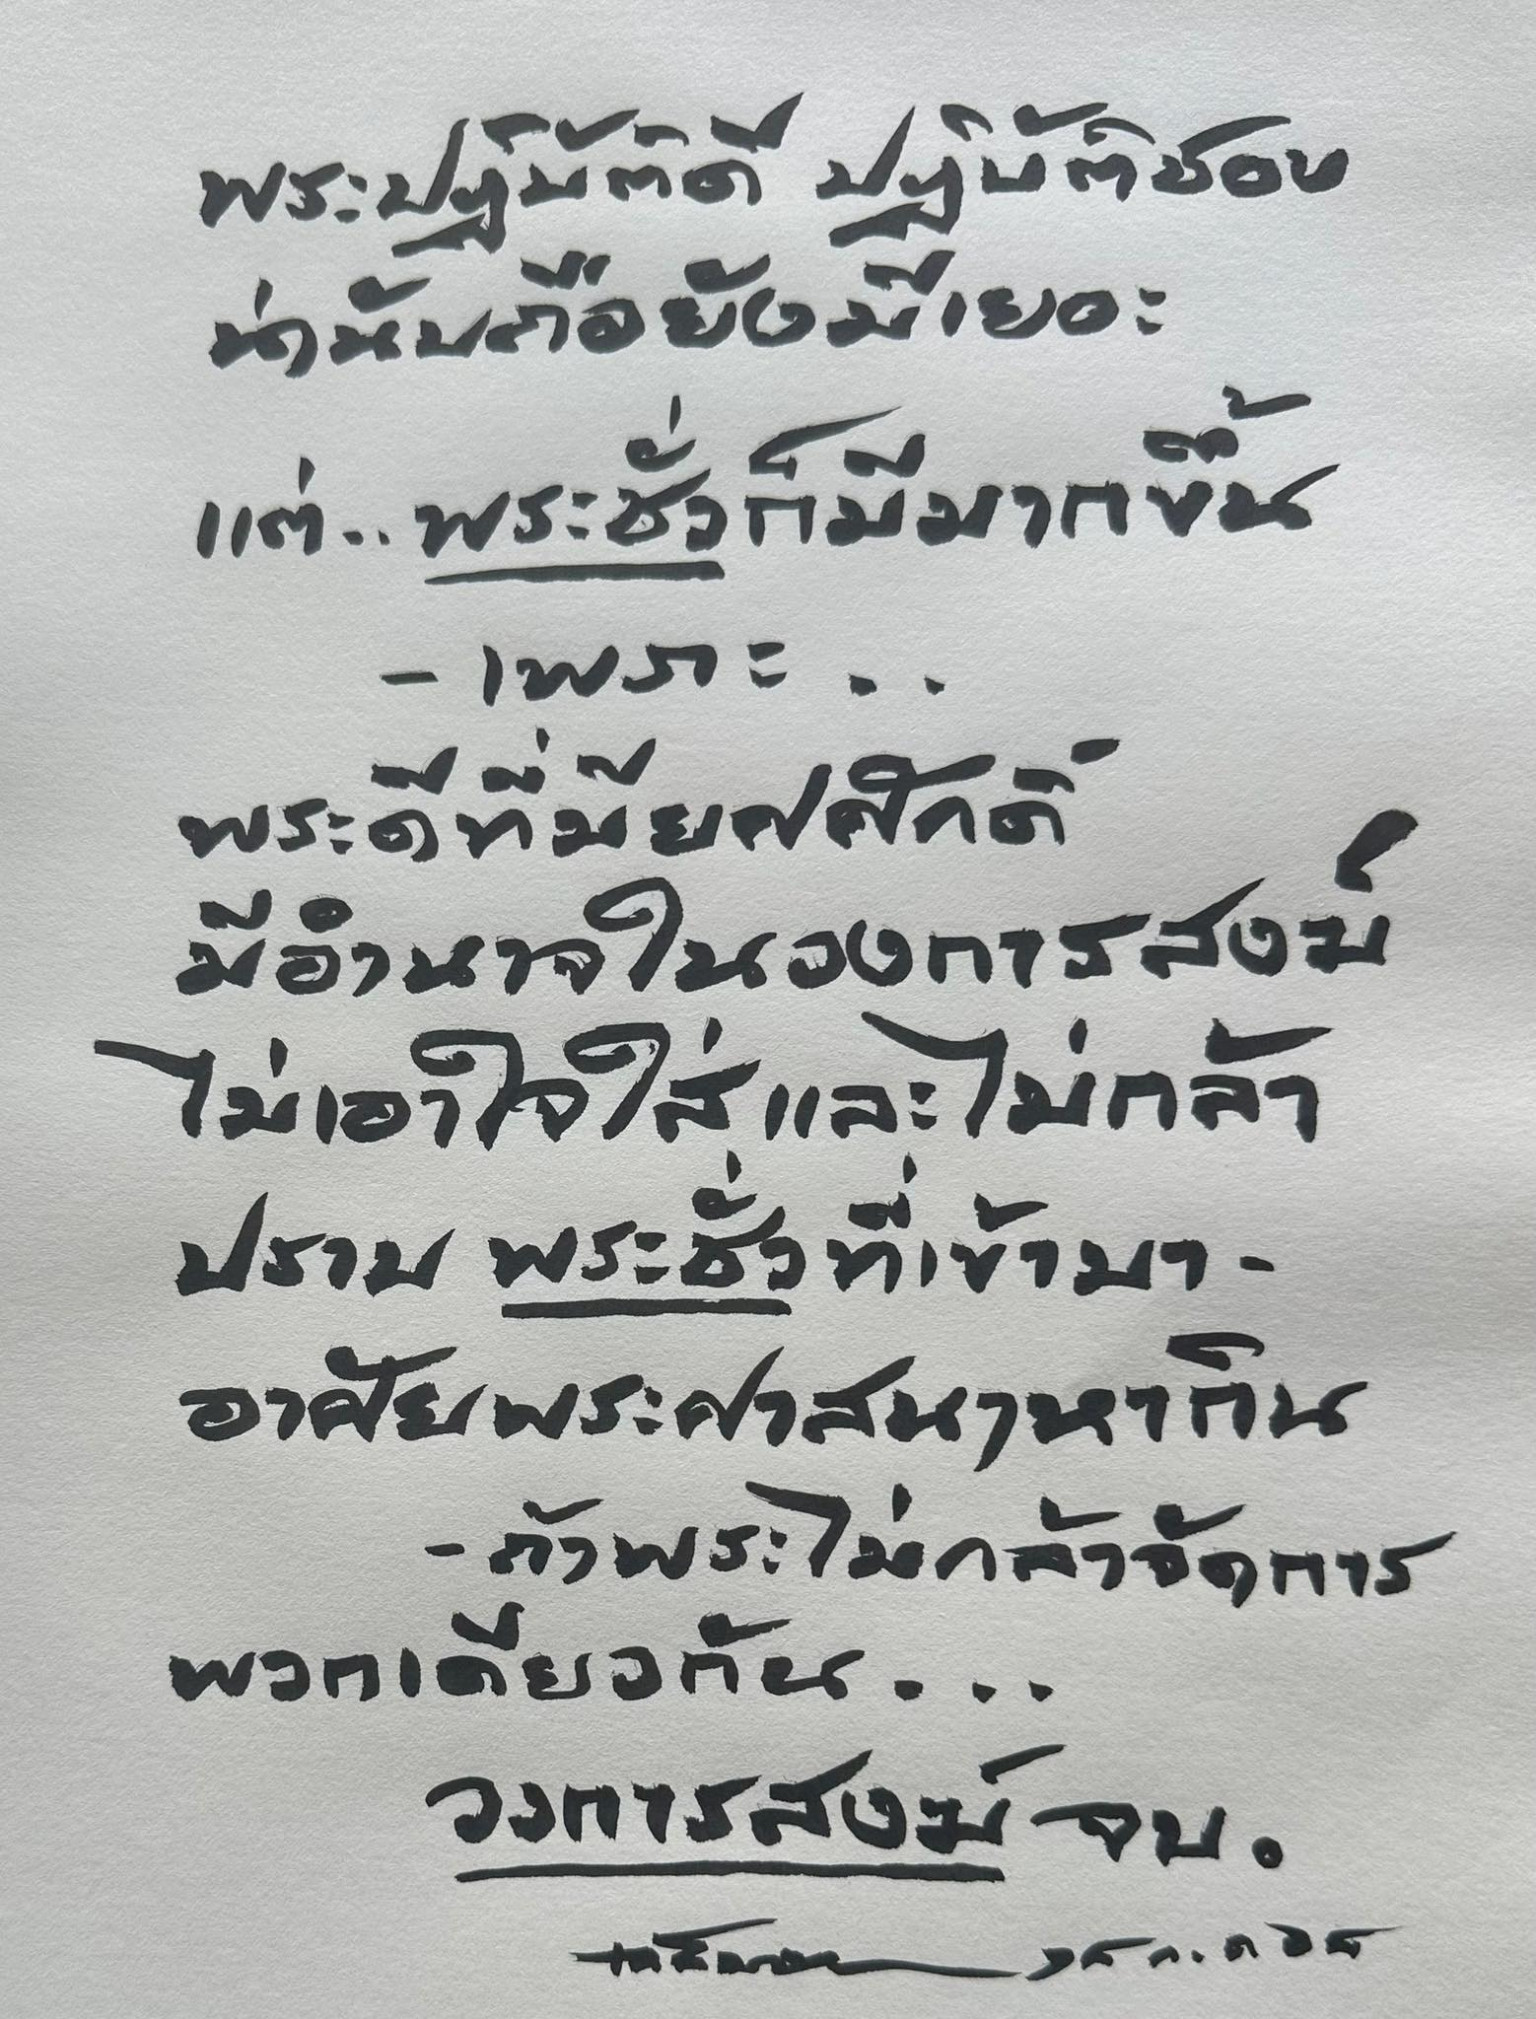 พระปฏิบัติดี ปฏิบัติชอบ
น่านับถือยังมีเยอะ
แต่.. พระชั่วก็มีมากขึ้น
- เพราะ ..
พระดีที่มียศศักดิ์
มีอำนาจในวงการสงฆ์
ไม่เอาใจใส่และไม่กล้า
ปราบ พระชั่วที่เข้ามา-
อาศัยพระศาสนาหากิน
- ถ้าพระไม่กล้าจัดการ
พวกเดียวกัน . . .
วงการสงฆ์ จบ.